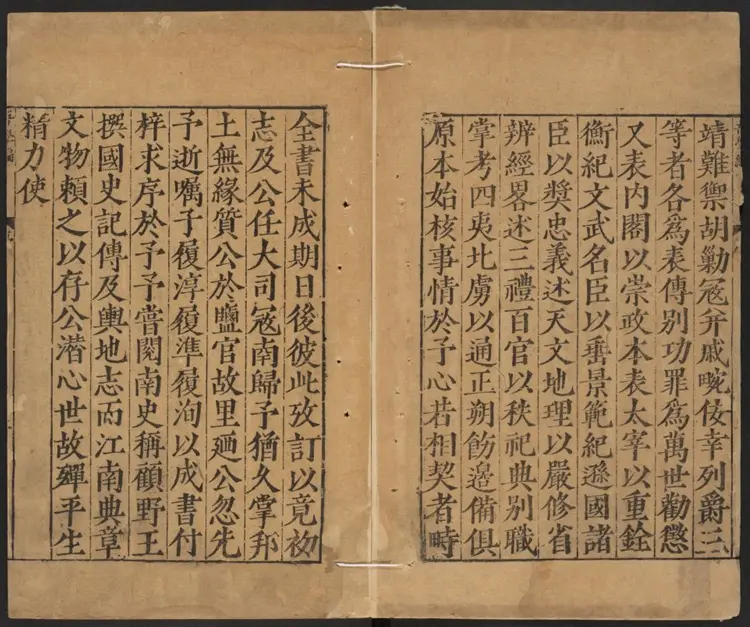 靖難禦胡勦冦弁戚畹佞幸列爵三
等者各爲表傳別功罪爲萬世勸懲
又表内閣以崇政本表太宰以重銓
衡紀文武名臣以垂景範紀遜國諸
臣以奬忠義述天文地理以嚴修省
辨經畧述三禮百官以秩祀典別職
掌考四夷北虜以通正朔飭邉備俱
原本始核事情於予心若相契者時
全書未成期日後彼此攷訂以竟初
志及公任大司冦南歸予猶久掌邦
土無緣質公於鹽官故里廼公忽先
予逝嘱子履淳履準履洵以成書付
梓求序於予予嘗閱南史稱顧野王
撰國史記傳及輿地志而江南典章
文物頼之以存公潜心世故殫平生
精力使